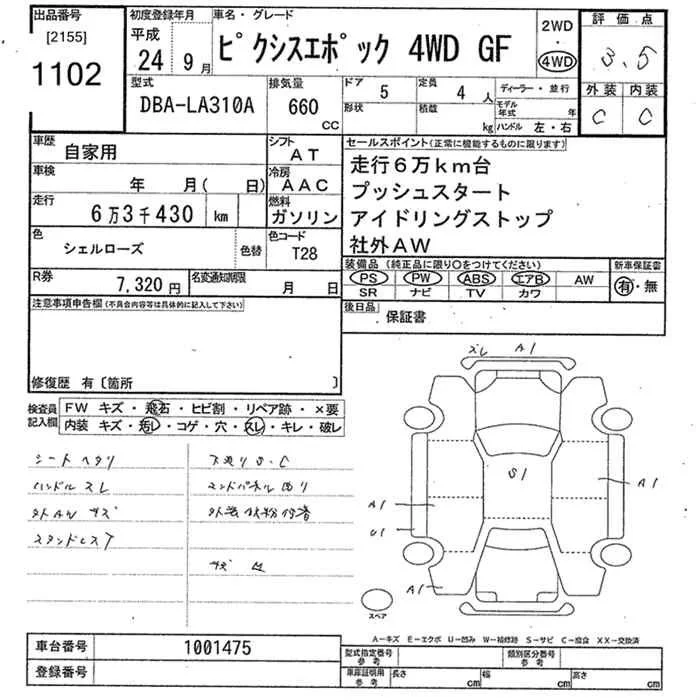 出品番号 初度登録年月 車名・グレード 2WD 評価点
[2155] 平成 ピクシスエポック 4WD GF 4WD 3.5
1102 24年9月
型式 排気量 ドア 5 定員 4人 ディーラー・並行 外装 内装
DBA-LA310A 660cc 形状 積載 kg モデル年式 年 ハンドル 左・右 C C
車歴 自家用 シフト AT セールスポイント(正常に機能するものに限ります)
車検 年 月( 日) 冷房 AAC 走行6万km台
プッシュスタート
走行 6万3千430 km 燃料 ガソリン アイドリングストップ
色 シェルローズ 色替 色コード T28 社外AW
装備品(純正品に限り○をつけてください) 新車保証書
R券 7,320円 名変通知期限 月 日 PS PW ABS エアB AW 有・無
SR ナビ TV カワ
注意事項申告欄(不具合内容等は具体的に記入して下さい) 後日品 保証書
修復歴 有〔箇所 〕
検査員記入欄 FW キズ・飛石・ヒビ割・リペア跡・×要
内装 キズ・汚レ・コゲ・穴・スレ・キレ・破レ
シートヘタリ 下廻りS.C
ハンドルスレ
外AWキズ
スレ A1
S1
A1
A1
U1
A1
スペア
A-キズ E-エクボ U-凹み W-補修跡 S-サビ C-腐食 XX-交換済
車台番号 1001475 型式指定番号 参考 類別区分番号 参考
登録番号 車庫証明用 参考 長さ cm 幅 cm 高さ cm